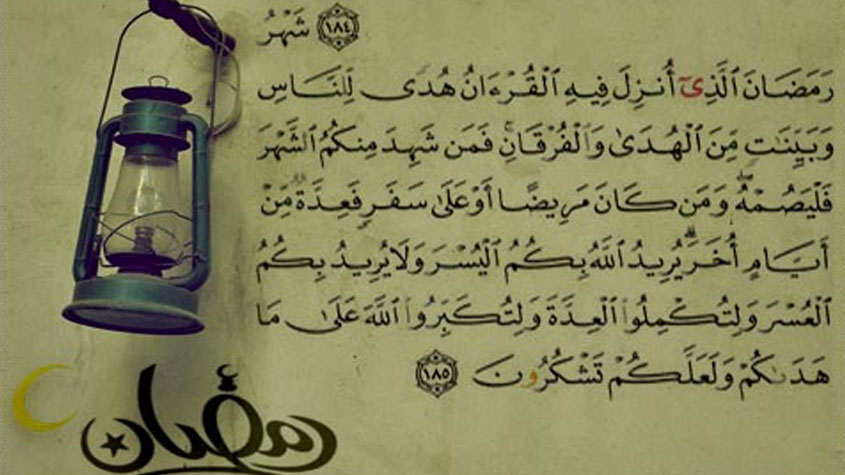 ﴿١٨٤﴾ شَهْرُ
رَمَضَانَ ٱلَّذِىٓ أُنزِلَ فِيهِ ٱلْقُرْءَانُ هُدًى لِّلنَّاسِ
وَبَيِّنَٰتٍ مِّنَ ٱلْهُدَىٰ وَٱلْفُرْقَانِ ۚ فَمَن شَهِدَ مِنكُمُ ٱلشَّهْرَ
فَلْيَصُمْهُ ۖ وَمَن كَانَ مَرِيضًا أَوْ عَلَىٰ سَفَرٍ فَعِدَّةٌ مِّنْ
أَيَّامٍ أُخَرَ ۗ يُرِيدُ ٱللَّهُ بِكُمُ ٱلْيُسْرَ وَلَا يُرِيدُ بِكُمُ
ٱلْعُسْرَ وَلِتُكْمِلُوا۟ ٱلْعِدَّةَ وَلِتُكَبِّرُوا۟ ٱللَّهَ عَلَىٰ مَا
هَدَىٰكُمْ وَلَعَلَّكُمْ تَشْكُرُونَ ﴿١٨٥﴾
رمضان